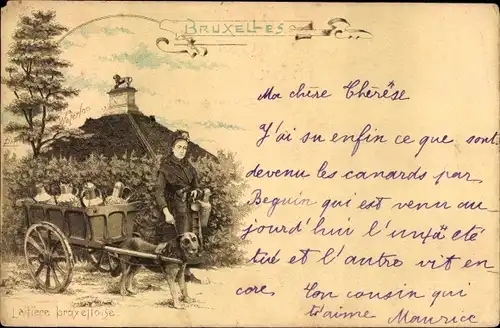 BRUXELLES
Ma chère Thérèse
J'ai su enfin ce que sont
devenu les canards par
Beguin qui est venu au
jourd'hui l'un a été
tué et l'autre vit en
core. Ton cousin qui
t'aime Maurice
Laitière bruxelloise